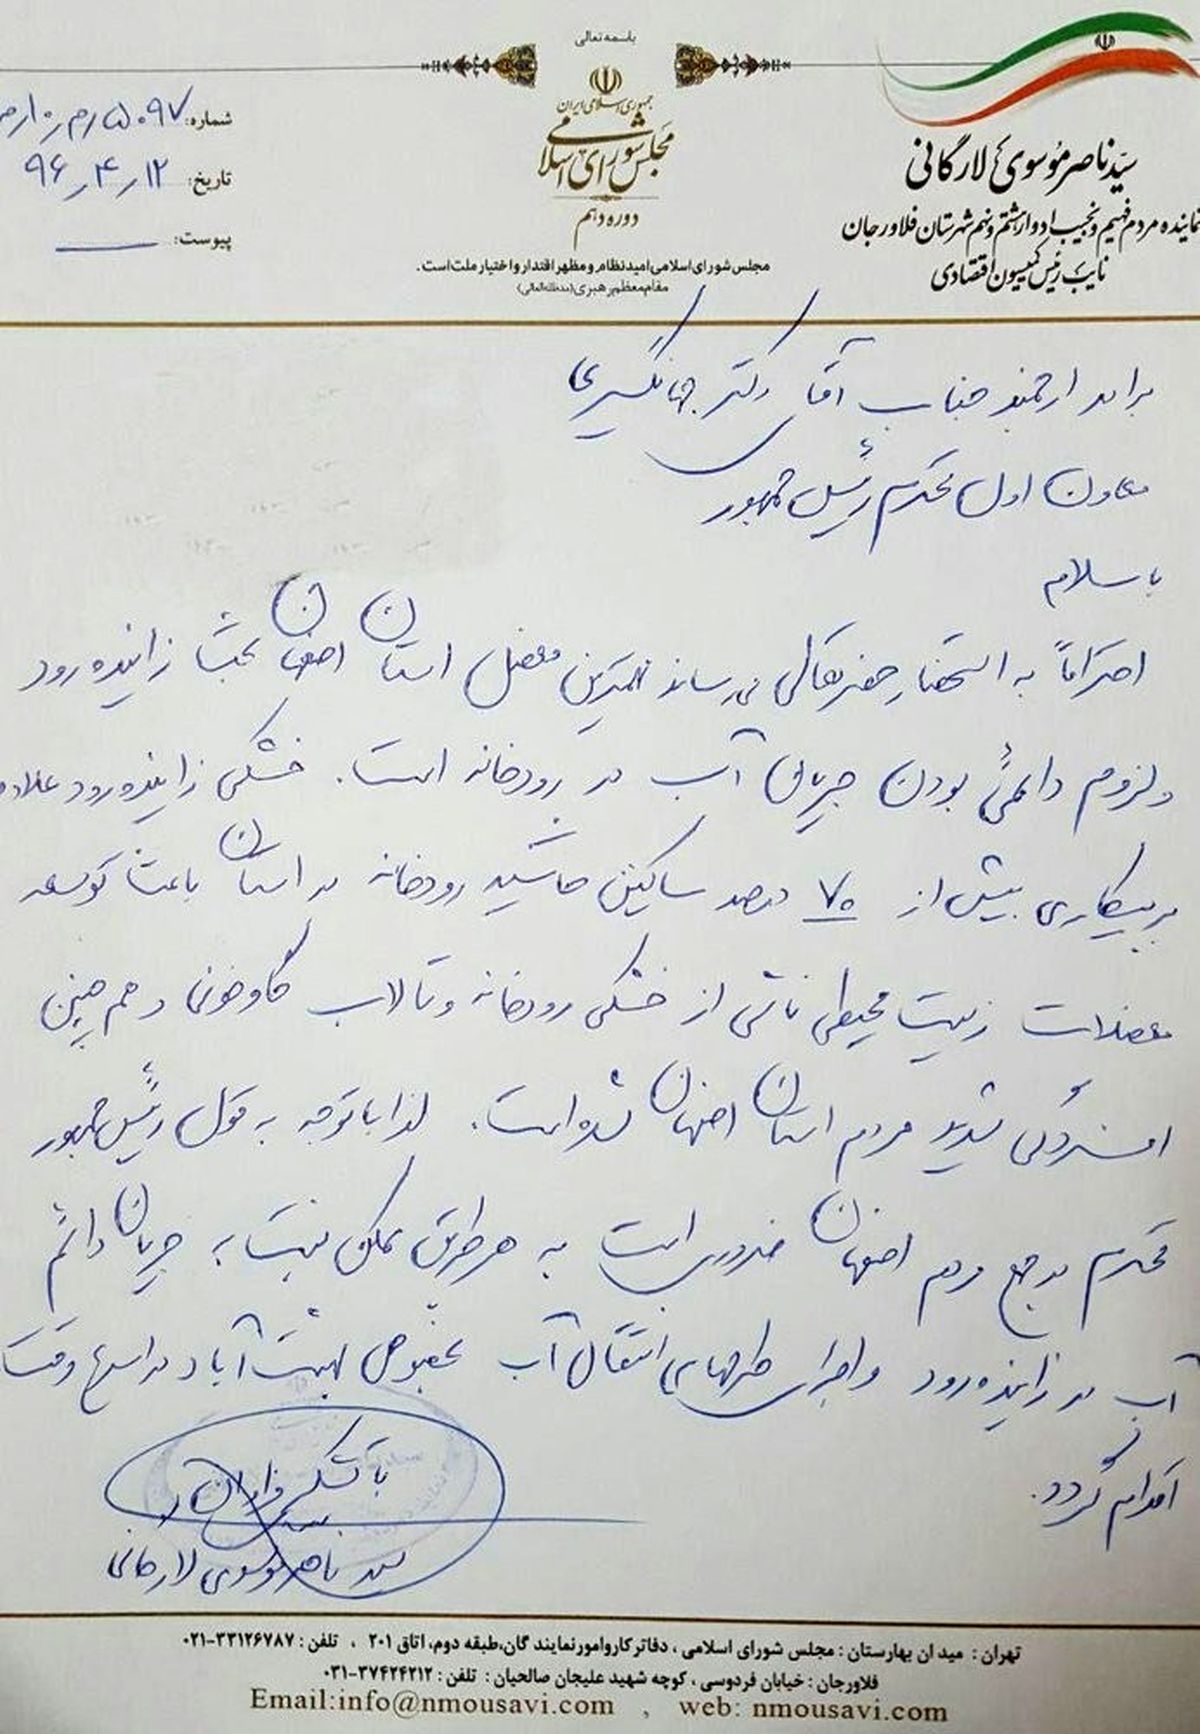 باسمه تعالی
جمهوری اسلامی ایران
مجلس شورای اسلامی
دوره دهم
مجلس شورای اسلامی امید نظام و مظهر اقتدار و اختیار ملت است.
مقام معظم رهبری (مدظله العالی)
سیّد ناصر موسوی لارگانی
نماینده مردم فهیم و نجیب ادوار هشتم و نهم شهرستان فلاورجان
نایب رئیس کمیسیون اقتصادی
شماره: ۵۰۹۷
تاریخ: ۹۶٫۴٫۱۲
پیوست: —
برادر ارجمند جناب آقای دکتر جهانگیری
معاون اول محترم رئیس جمهور
با سلام
احتراماً به استحضار حضرتعالی می رساند مهمترین معضل استان اصفهان بحث زاینده رود
و لزوم دائمی بودن جریان آب در رودخانه است. خشکی زاینده رود علاوه
بر بیکاری بیش از ۷۰ درصد ساکنین حاشیه رودخانه در استان باعث توسعه
معضلات زیست محیطی ناشی از خشکی رودخانه و تالاب گاوخونی و هم چنین
افسردگی شدید مردم استان اصفهان شده است. لذا با توجه به قول رئیس جمهور
محترم در جمع مردم اصفهان ضروری است به هر طریق ممکن نسبت به جریان دائم
آب در زاینده رود و اجرای طرحهای انتقال آب بخصوص بهشت آباد در اسرع وقت
اقدام گردد.
با تشکر فراوان
سید ناصر موسوی لارگانی
تهران : میدان بهارستان : مجلس شورای اسلامی ، دفاتر کار و امور نمایندگان،طبقه دوم، اتاق ۲۰۱ ، تلفن : ۳۳۱۲۶۷۸۷-۰۲۱
فلاورجان : خیابان فردوسی ، کوچه شهید علیجان صالحیان : تلفن : ۳۷۴۲۴۲۱۲-۰۳۱
Email:info@nmousavi.com , web: nmousavi.com